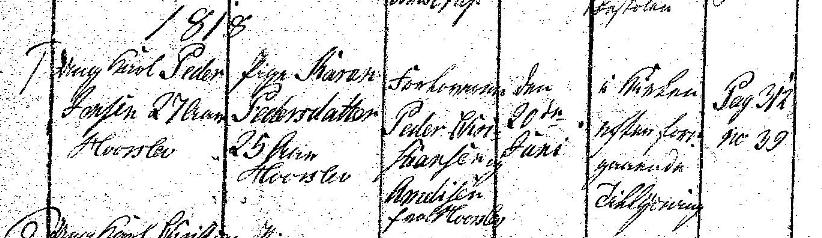 1818
Ung Karl Peder
Jensen 27 Aar
Hoorslev
Pige Karen
Pedersdatter
25 Aar
Hoorslev
Forloverne
Peder Chri-
stiansen og
fra Hoorslev
den
20de
Juni
i Kirken
efter for-
gaaende
Tillysning
Pag 312
no 39